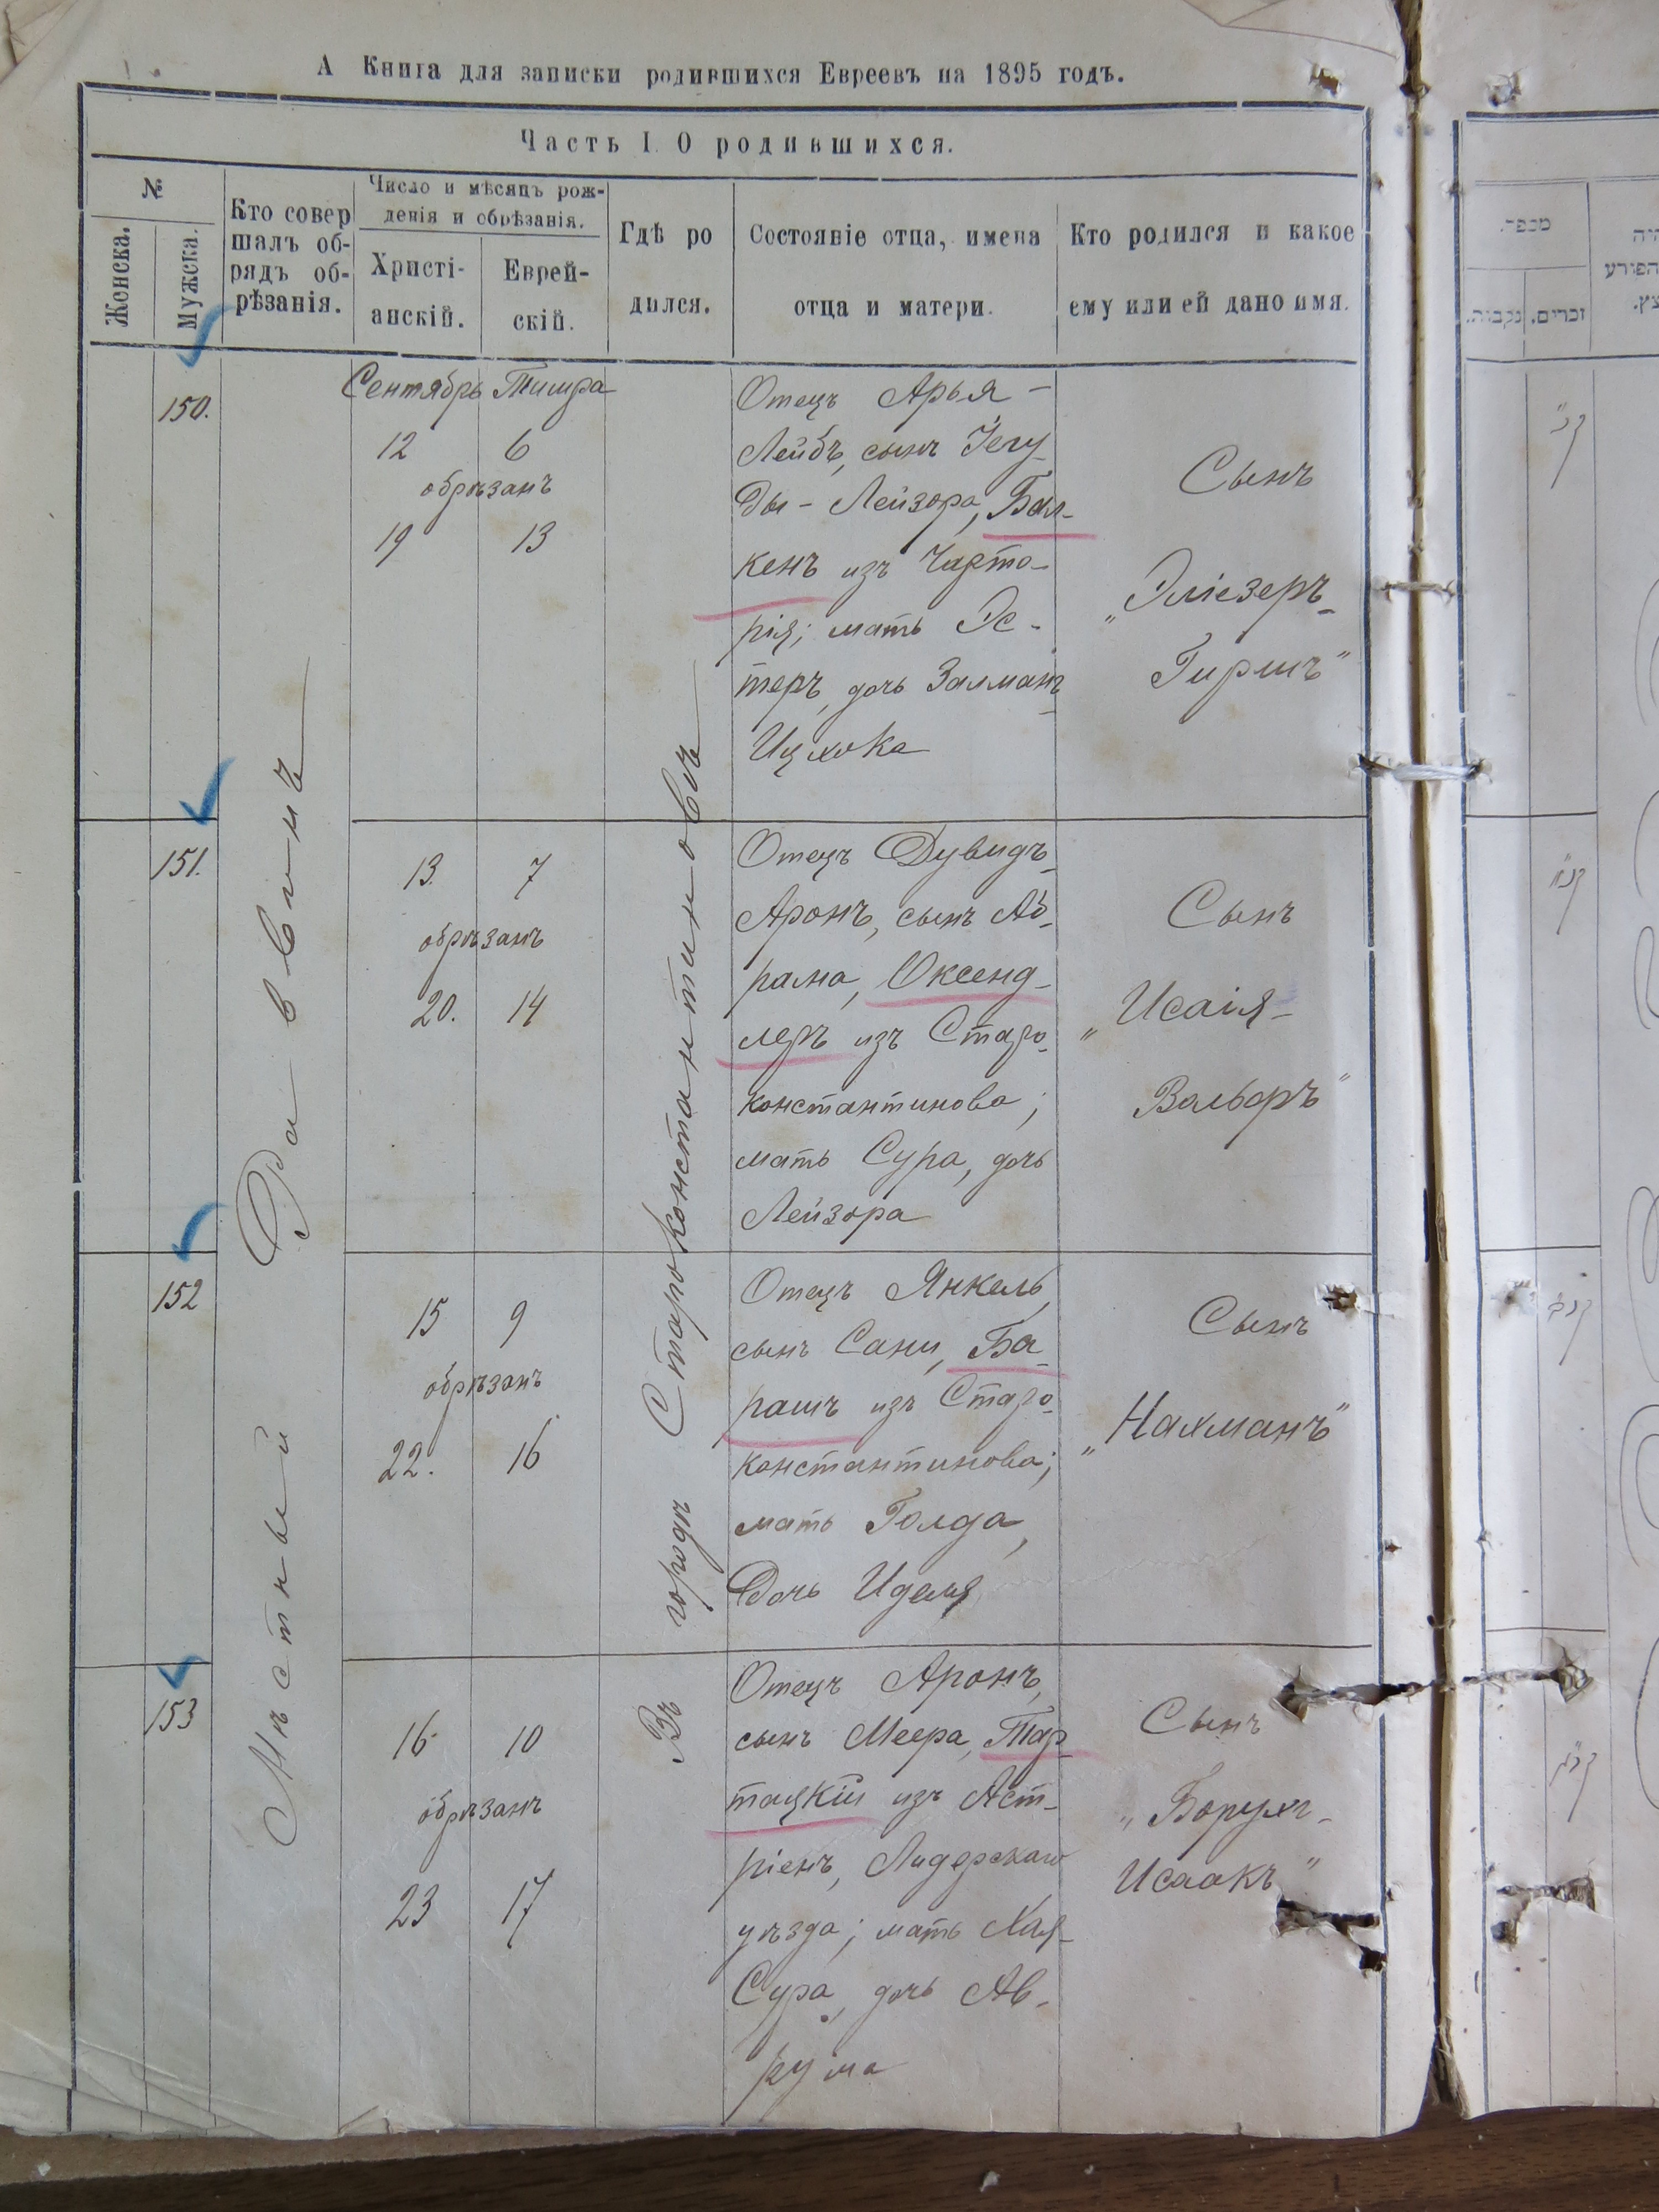 А Книга для записки родившихся Евреевъ на 1895 годъ.
Часть I. О родившихся.
№
Женска.
Мужска.
Кто совер
шалъ об-
рядъ об-
рѣзанія.
Число и мѣсяцъ рож-
денія и обрѣзанія.
Христі-
анскій.
Еврей-
скій.
Гдѣ ро
дился.
Состояніе отца, имена
отца и матери.
Кто родился и какое
ему или ей дано имя.
Мѣстный Раввинъ
Въ городѣ Староконстантиновѣ
150.
Сентябрь Тишра
12 6
обрѣзанъ
19 13
Отецъ Арья-
Лейбъ, сынъ Іегу-
ды-Лейзора, Бал-
кенъ изъ Чарто-
рія; мать Эс-
теръ, дочь Залмана-
Ицхока
Сынъ
„Эліезеръ-
Гиршъ"
151.
13. 7
обрѣзанъ
20. 14
Отецъ Дувидъ-
Аронъ, сынъ Аб-
рама, Оксенд-
леръ изъ Старо-
константинова;
мать Сура, дочь
Лейзора
Сынъ
„Исаія-
Вольфъ"
152
15 9
обрѣзанъ
22. 16
Отецъ Янкель,
сынъ Сани, Ба-
рашъ изъ Старо-
константинова;
мать Голда,
дочь Иделя
Сынъ
„Нахманъ"
153
16. 10
обрѣзанъ
23 17
Отецъ Аронъ,
сынъ Меера, Тар-
тацкій изъ
уѣзда; мать Хая-
Сура, дочь Ав-
рума
Сынъ
„Борухъ-
Исаакъ"
מספר.
זכרים.
נקבות.
הפורע
קנ"א
קנ"ב
קנ"ג